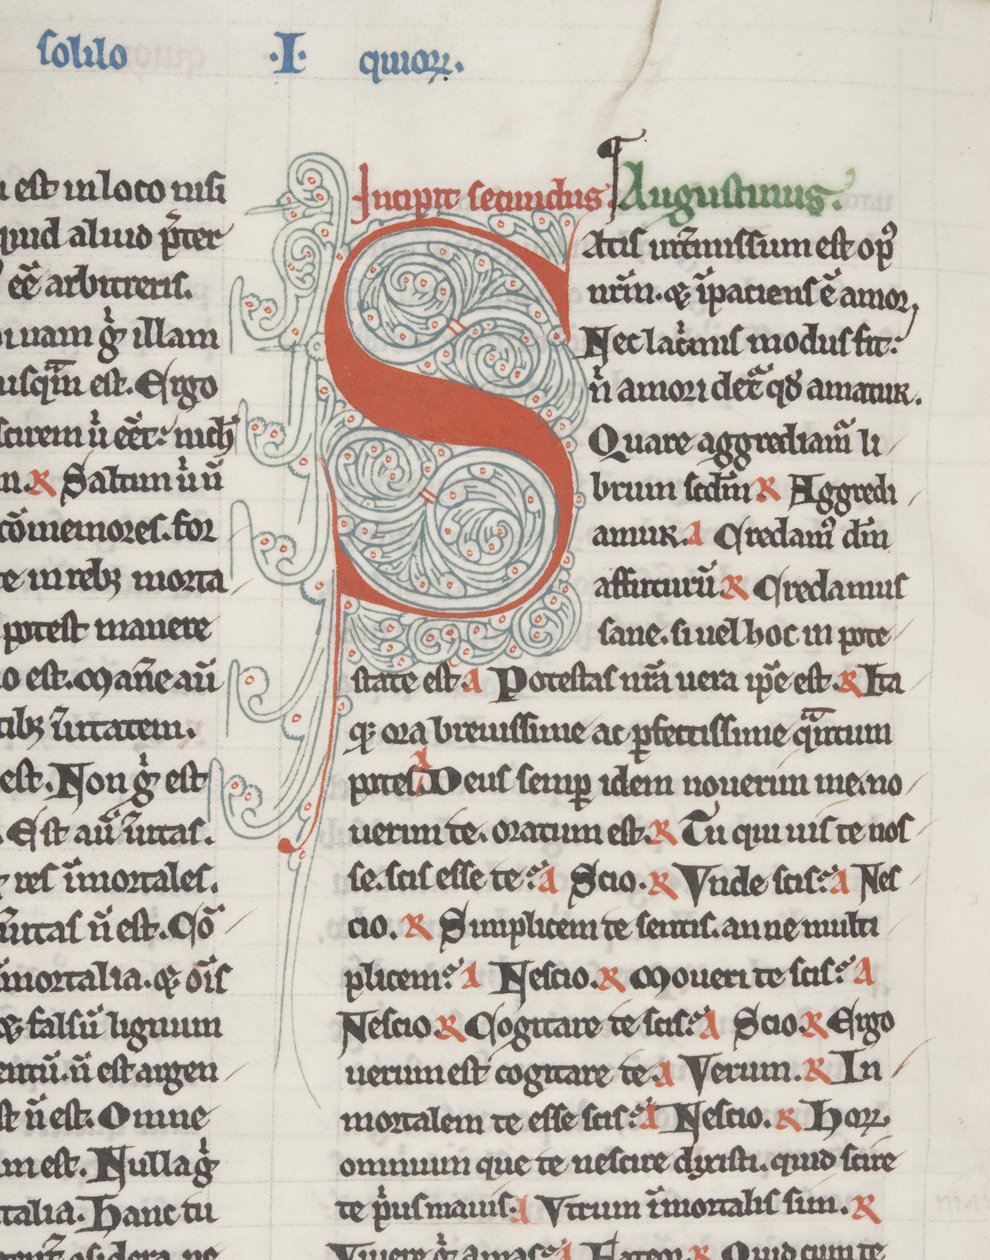 solilo ·I· quioꝝ.
est in loco nisi
quid aliud p̄ter
eē arbitreris.
nam g̊ illam
est. Ergo
ꝶ Saltim
cōmemores. for
te in rebꝫ morta
potest manere
o est. Mañe aū
tibꝫ ūitatem.
est. Non g̊ est
. Est aū ūitas.
res īmortales.
ūitas ñ est. Cō
īmortalia. ⁊ oīs
⁊ falsū lignum
ñ est argen
ñ est. Omne
est. Nulla g̊
talia. Hanc tu
Incipit secundus Augustinus.
Satis int̄missum est opꝰ
nr̄m. ⁊ īpaciens ē amor,
Nec lac̓mis modus fit:
n̄ amori det̄ qđ amatur.
Quare aggrediam̄ li
brum scđm ꝶ Aggredi
amur. A Credamꝰ dm̄
affuturū ꝶ Credamus
sane. si uel hoc in pote
state est A Potestas nr̄a uera ip̄e est. ꝶ Ita
qꝫ ora breuissime ac ꝑfectissime qͣntum
potes A Deus semꝑ idem nouerim me. no
uerim te. oratum est. ꝶ Tu qui uis te nos
se. scis esse te: A Scio. ꝶ Vnde scis: A Nes
cio. ꝶ Simplicem te sentis. an ne multi
plicem: A Nescio. ꝶ Moueri te scis: A
Nescio ꝶ Cogitare te scis: A Scio. ꝶ Ergo
uerum est cogitare te. A Verum. ꝶ In
mortalem te esse scis: A Nescio. ꝶ Hoꝝ
omnium que te nescire dixisti. quid scire
te p̓us mauis. A Vtrum īmortalis sim. ꝶ
Viuere g̊ amas. A Fateor. ꝶ Quid cum te